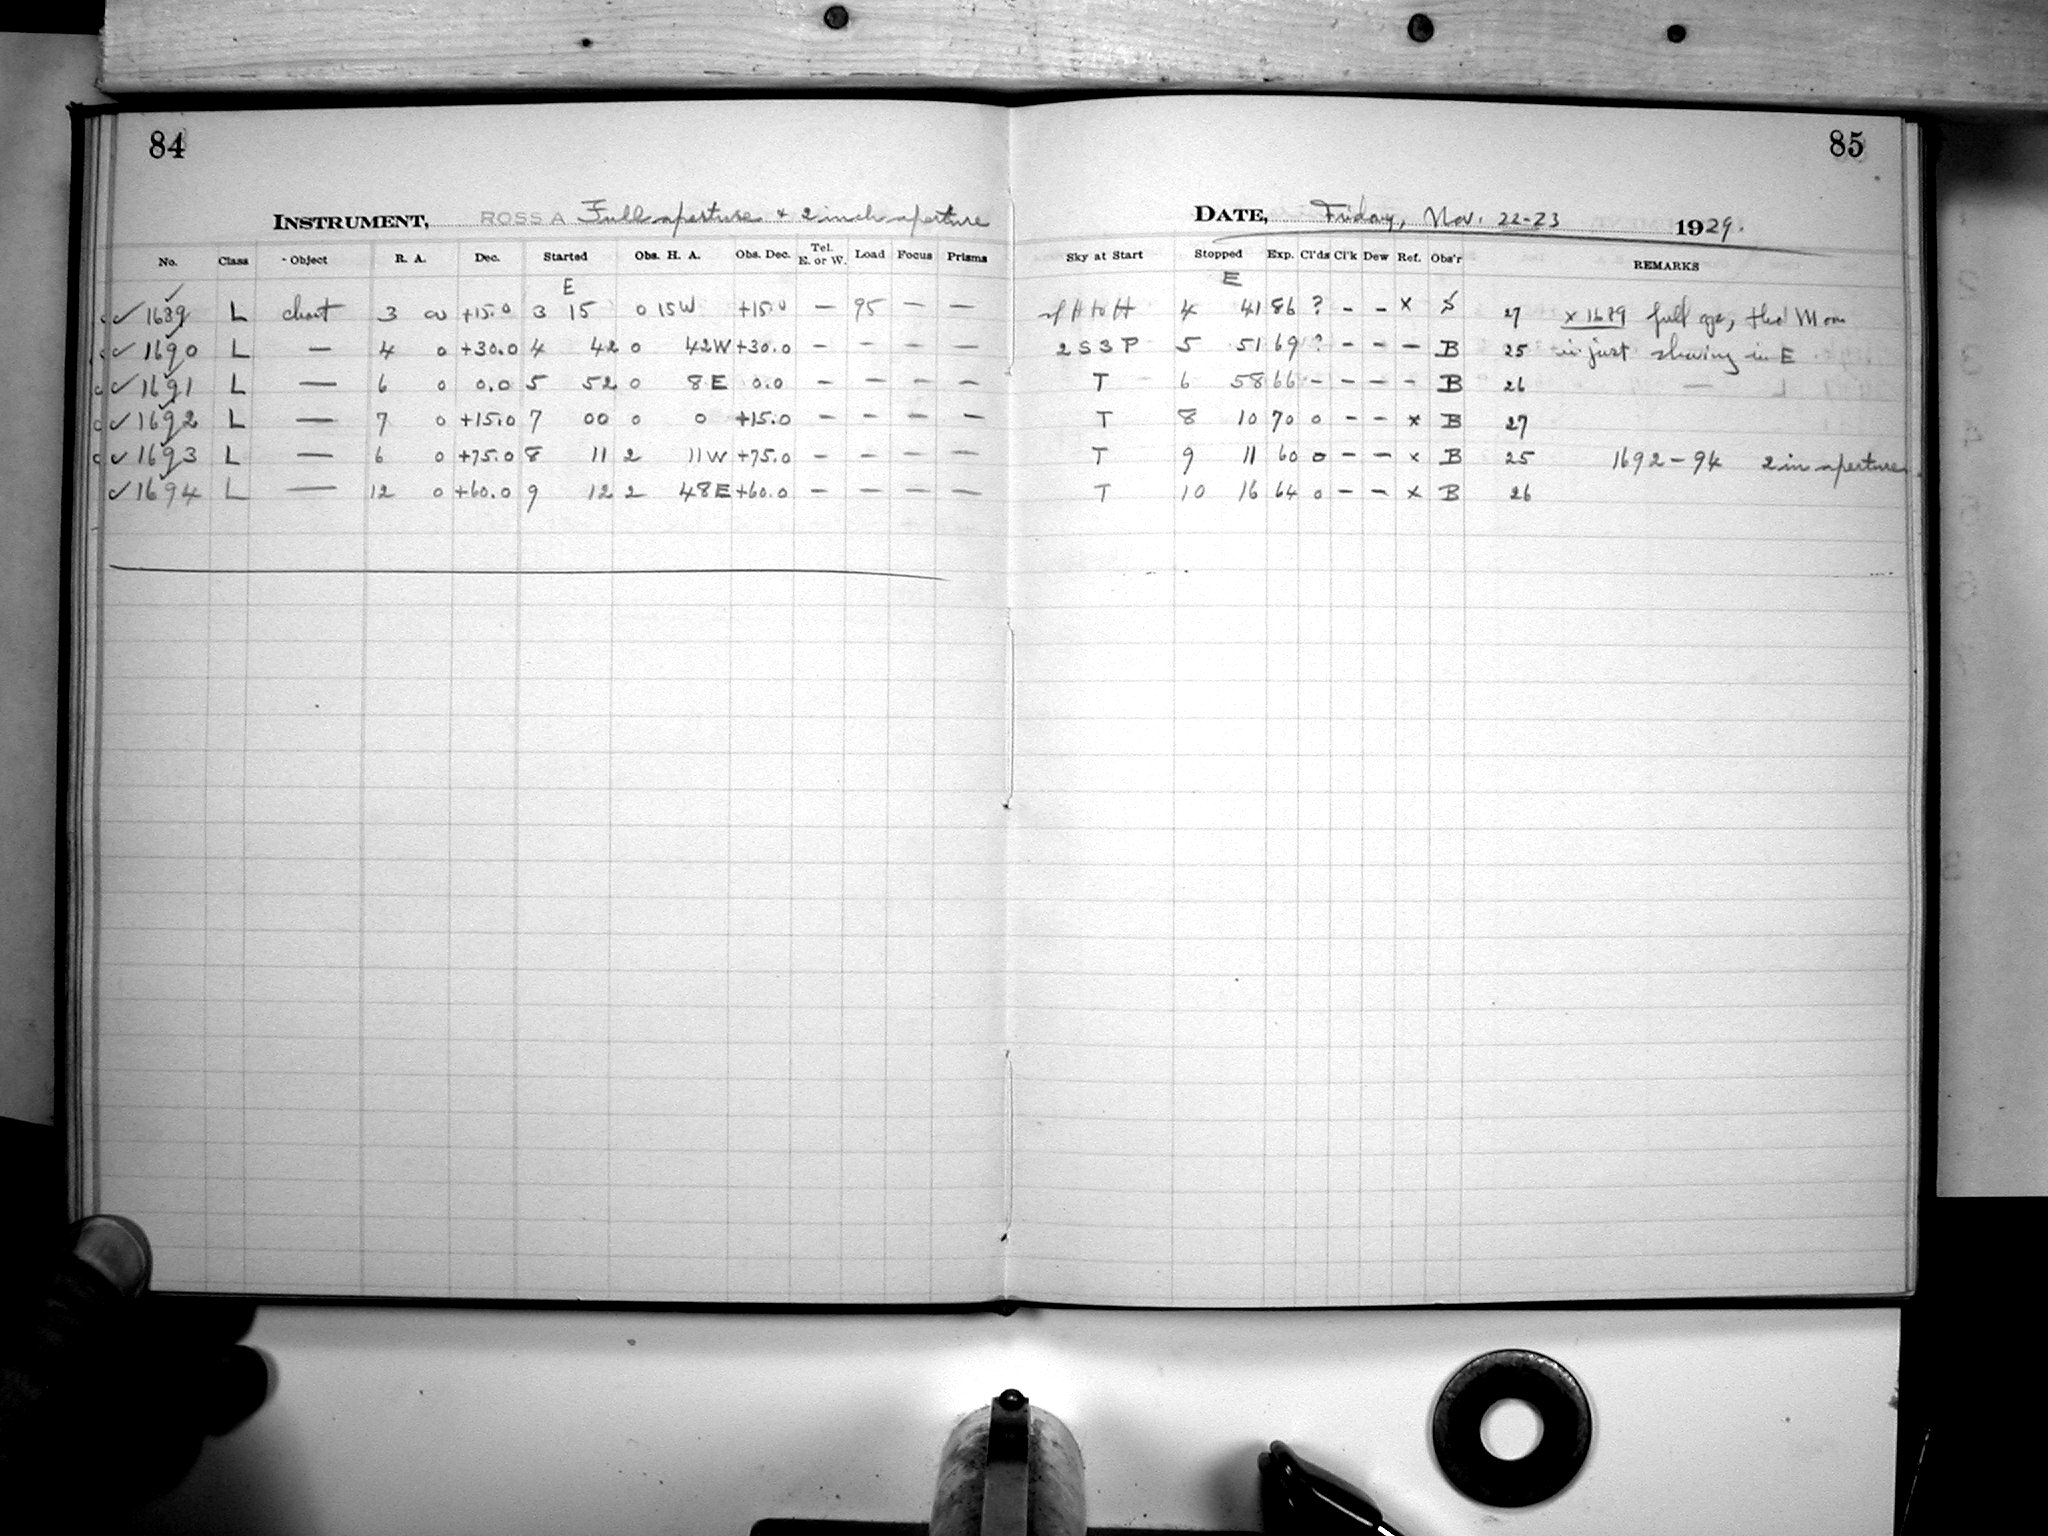 84
INSTRUMENT, ROSS A Full aperture & 2 inch aperture
No. Class Object R. A. Dec. Started Obs. H. A. Obs. Dec. Tel. E. or W. Load Focus Prisms
E
✓ 1689 L chart 3 00 +15.0 3 15 0 15W +15.0 — 95 — —
✓ 1690 L — 4 0 +30.0 4 42 0 42W +30.0 — — — —
✓ 1691 L — 6 0 0.0 5 52 0 8E 0.0 — — — —
✓ 1692 L — 7 0 +15.0 7 00 0 0 +15.0 — — — —
✓ 1693 L — 6 0 +75.0 8 11 2 11W +75.0 — — — —
✓ 1694 L — 12 0 +60.0 9 12 2 48E +60.0 — — — —
85
DATE, Friday, Nov. 22-23 1929.
Sky at Start Stopped Exp. Cl'ds Cl'k Dew Ref. Obs'r REMARKS
E
H to H 4 41 86 ? - - x S 27 x 1689 full ap,
2 S 3 P 5 51 69 ? - - - B 25 in just showing in E
T 6 58 66 - - - - B 26
T 8 10 70 0 - - x B 27
T 9 11 60 0 - - x B 25 1692-94 2 in aperture
T 10 16 64 0 - - x B 26